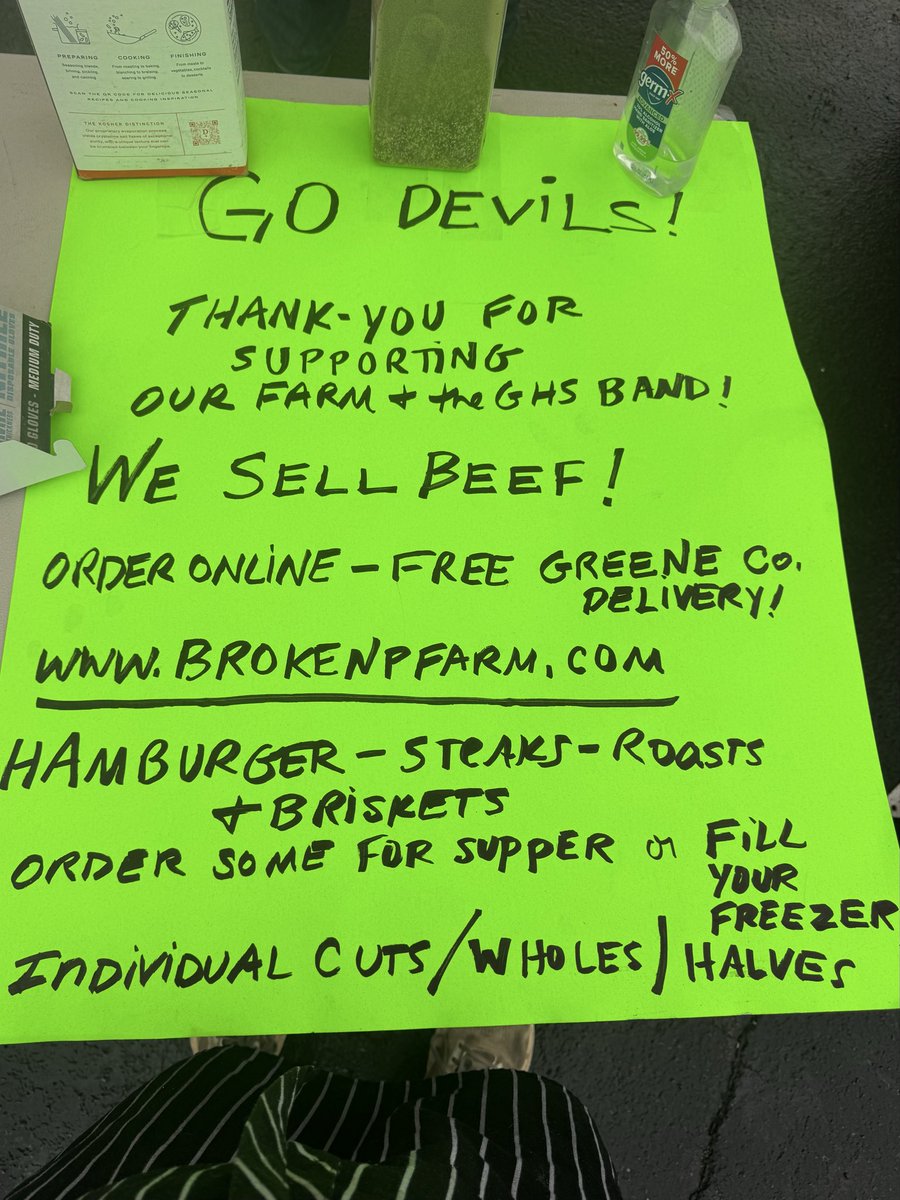 PREPARING
COOKING
FINISHING
SCAN THE QR CODE FOR DELICIOUS SEASONAL
RECIPES AND COOKING INSPIRATION
THE KOSHER DISTINCTION
50%
MORE
germ-X
ADVANCED
GO DEViLS!
THANK-YOU FOR
SUPPORTING
OUR FARM + the GHS BAND!
WE SELL BEEF!
ORDER ONLiNE - FREE GREENE Co.
DELIVERY!
WWW.BROKENPFARM.COM
HAMBURGER - STEAKS - ROASTS
+ BRiSKETS
ORDER SOME FOR SUPPER or FiLL
YOUR
FREEZER
INDiViDUAL CUTS/WHOLES/HALVES
DISPOSABLE GLOVES
GLOVES - MEDIUM DUTY